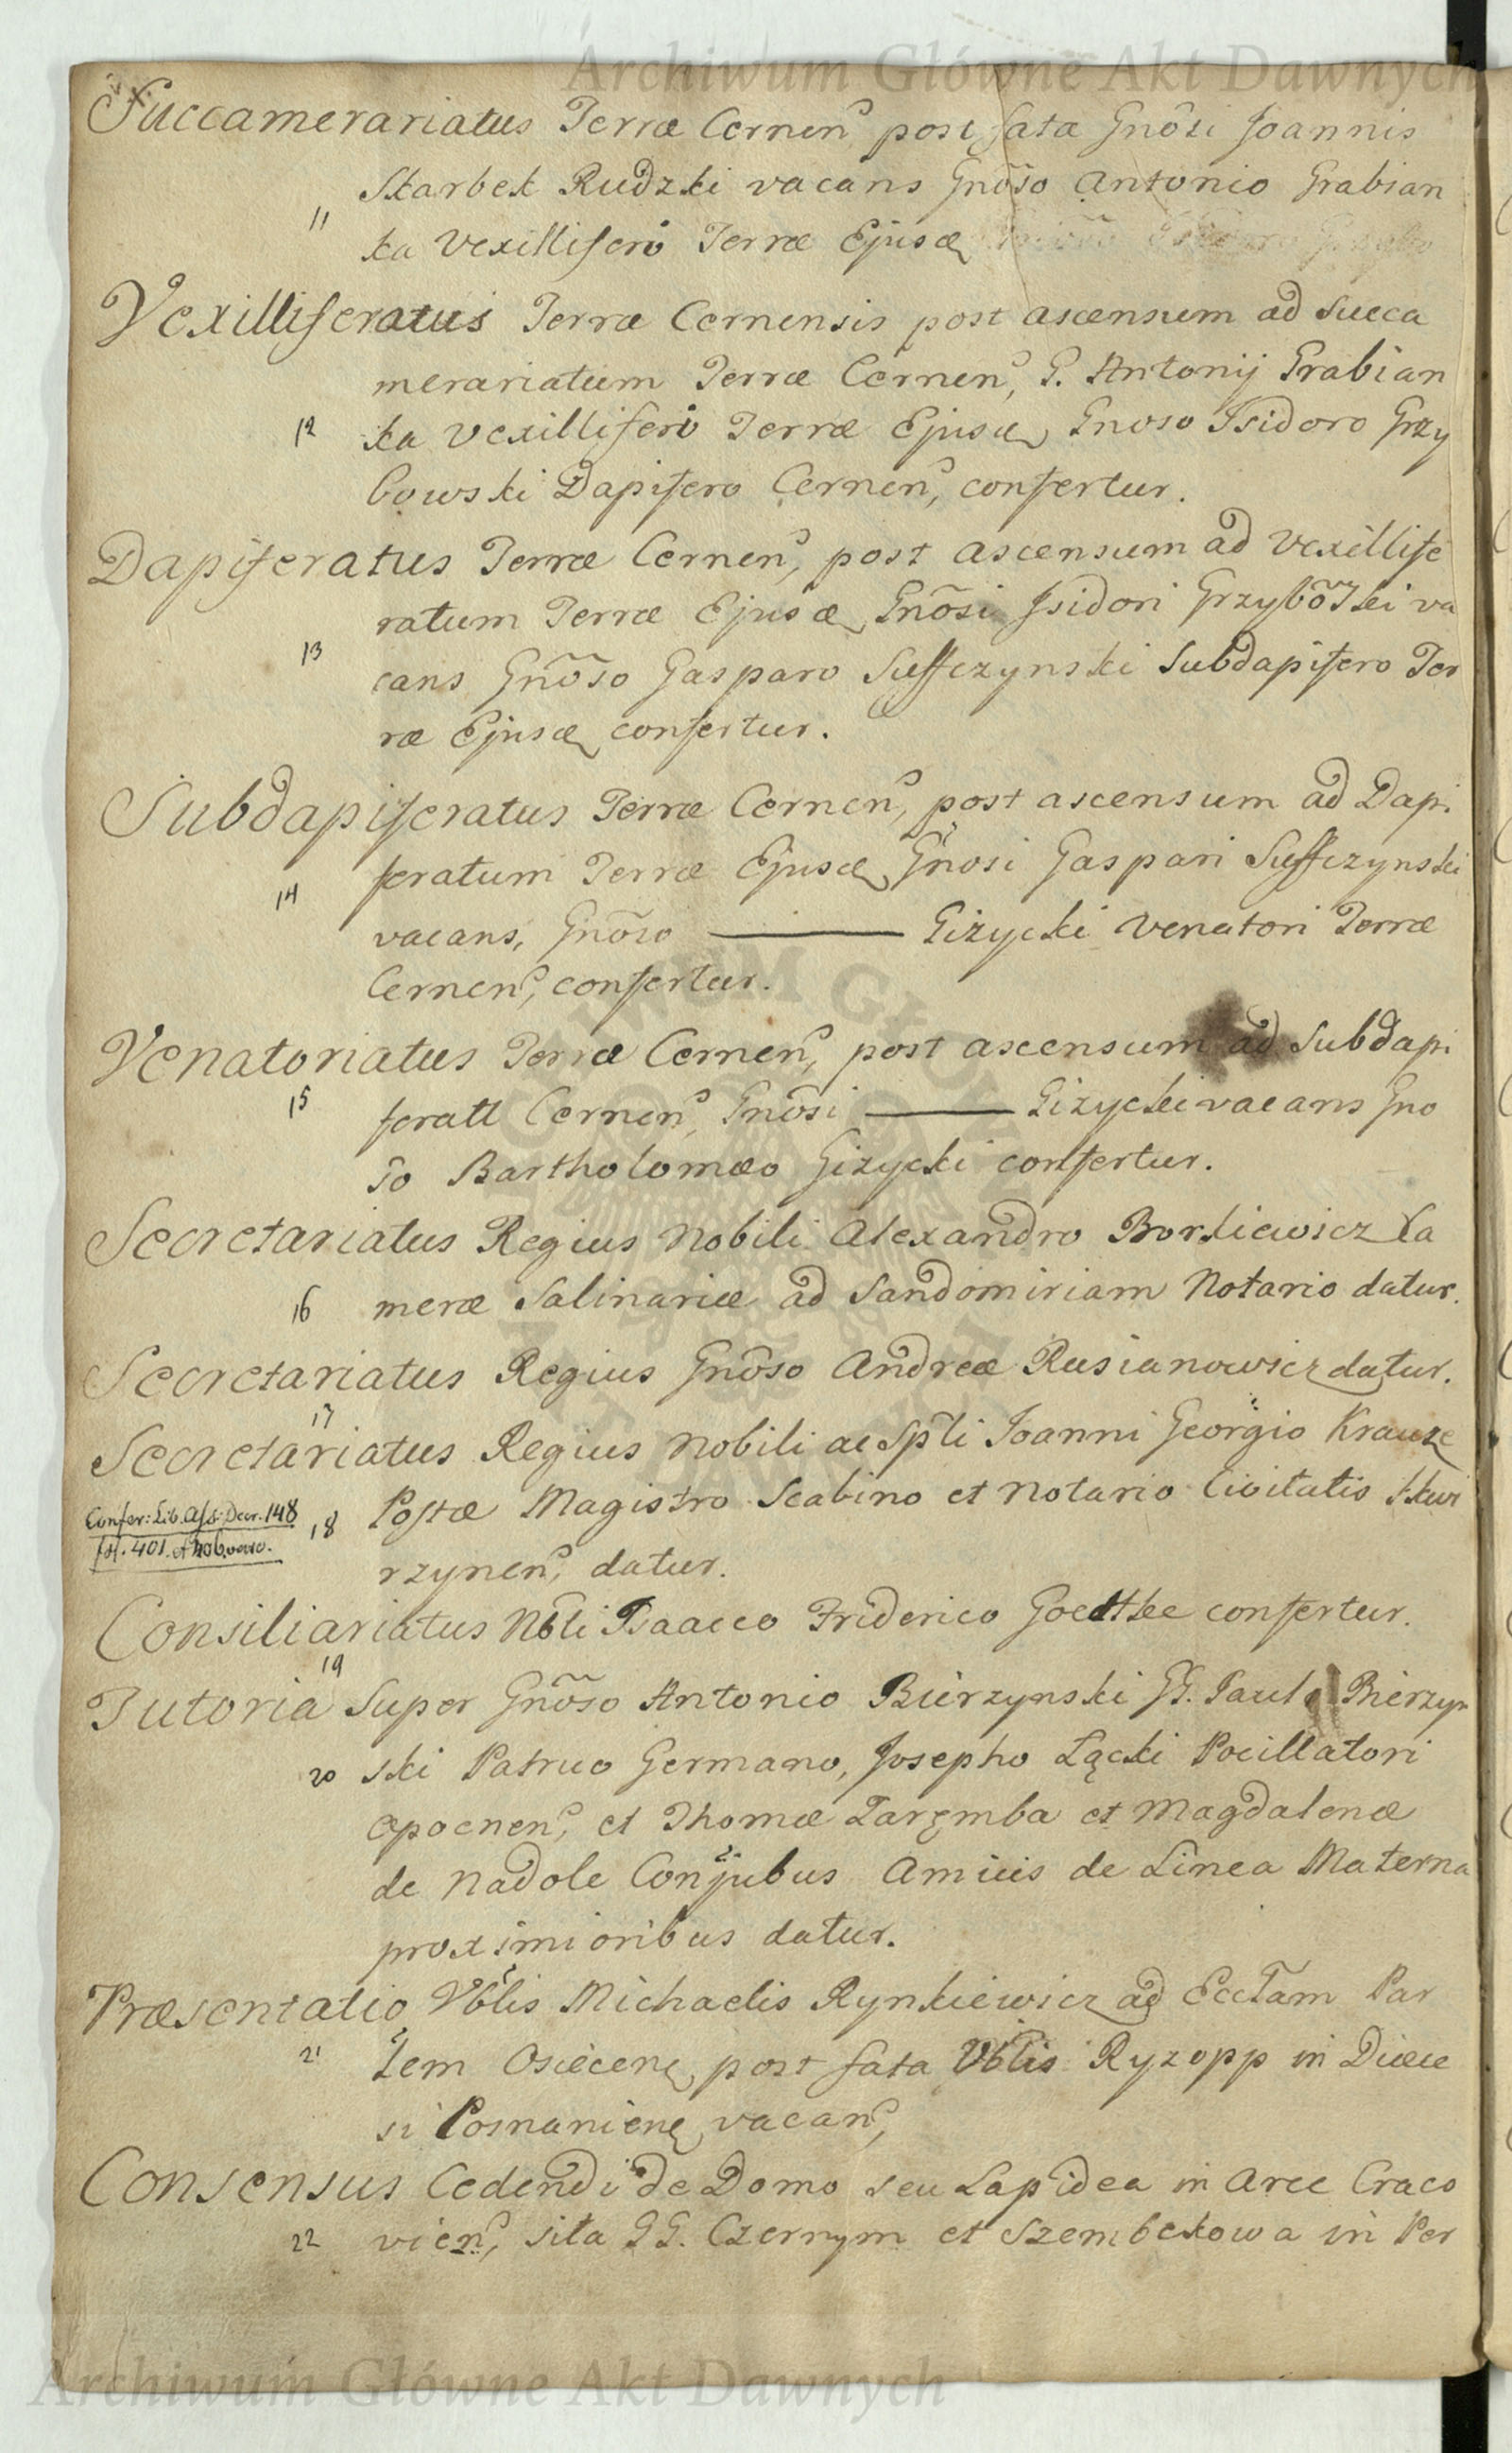 Archiwum Główne Akt Dawnych
Succamerariatus Terræ Cernen, post fata Gnosi Joannis
Skarbek Rudzki vacans Gnõso Antonio Grabian
11
ka Vexillifero Terræ Ejusd
Vexilliferatus Terræ Cernensis post ascensum ad Succa
merariatum Terræ Cernen, G. Antonij Grabian
12 ka Vexilliferi Terræ Ejusd, Gnoso Isidoro Grzy
bowski Dapifero Cernen, confertur.
Dapiferatus Terræ Cernen, post ascensum ad Vexillife
ratum Terræ Ejusd, Gnõsi Isidori Grzybõski va
13
cans Gnõso Gasparo Suffczynski Subdapifero Ter
ræ Ejusd, confertur.
Subdapiferatus Terræ Cernen, post ascensum ad Dapi
feratum Terræ Ejusd, Gnosi Gaspari Suffczynski
14
vacans, Gnõso ——— Giżycki Venatori Terræ
Cernen, confertur.
Venatoriatus Terræ Cernen, post ascensum ad Subdapi
15 feratt Cernen, Gnõsi ——— Giżycki vacans Gno
so Bartholomæo Giżycki confertur.
Secretariatus Regius Nobili Alexandro Borkiewicz Ca
16 meræ Salinariæ ad Sandomiriam Notario datur.
Secretariatus Regius Gnõso Andreæ Rusianowicz datur.
17
Secretariatus Regius Nobili ac Spli Joanni Georgio Krauze
Confer: Lib. Ass: Decr. 148
18 Postæ Magistro Scabino et Notario Civitatis Skwi
fol. 401. et verso.
rzynen, datur.
Consiliariatus Nõli Isaacco Friderico Goedtke confertur.
19
Tutoria Super Gnõso Antonio Bierzynski GG. Paulo Bierzyn
20 ski Patruo Germano, Josepho Łącki Pocillatori
Opocnen, et Thomæ Zaręmba et Magdalenæ
de Nadole Conjubus Amicis de Linea Materna
proximioribus datur.
Præsentatio Vblis Michaelis Rynkiewicz ad Ecclam Par
21 lem Osiecen, post fata Vblis Ryzopp in Diœce
si Posnanien, vacan,
Consensus Cedendi de Domo seu Lapidea in Arce Craco
22 vien, sita GG. Czernym et Szembekowa in Per
Archiwum Główne Akt Dawnych